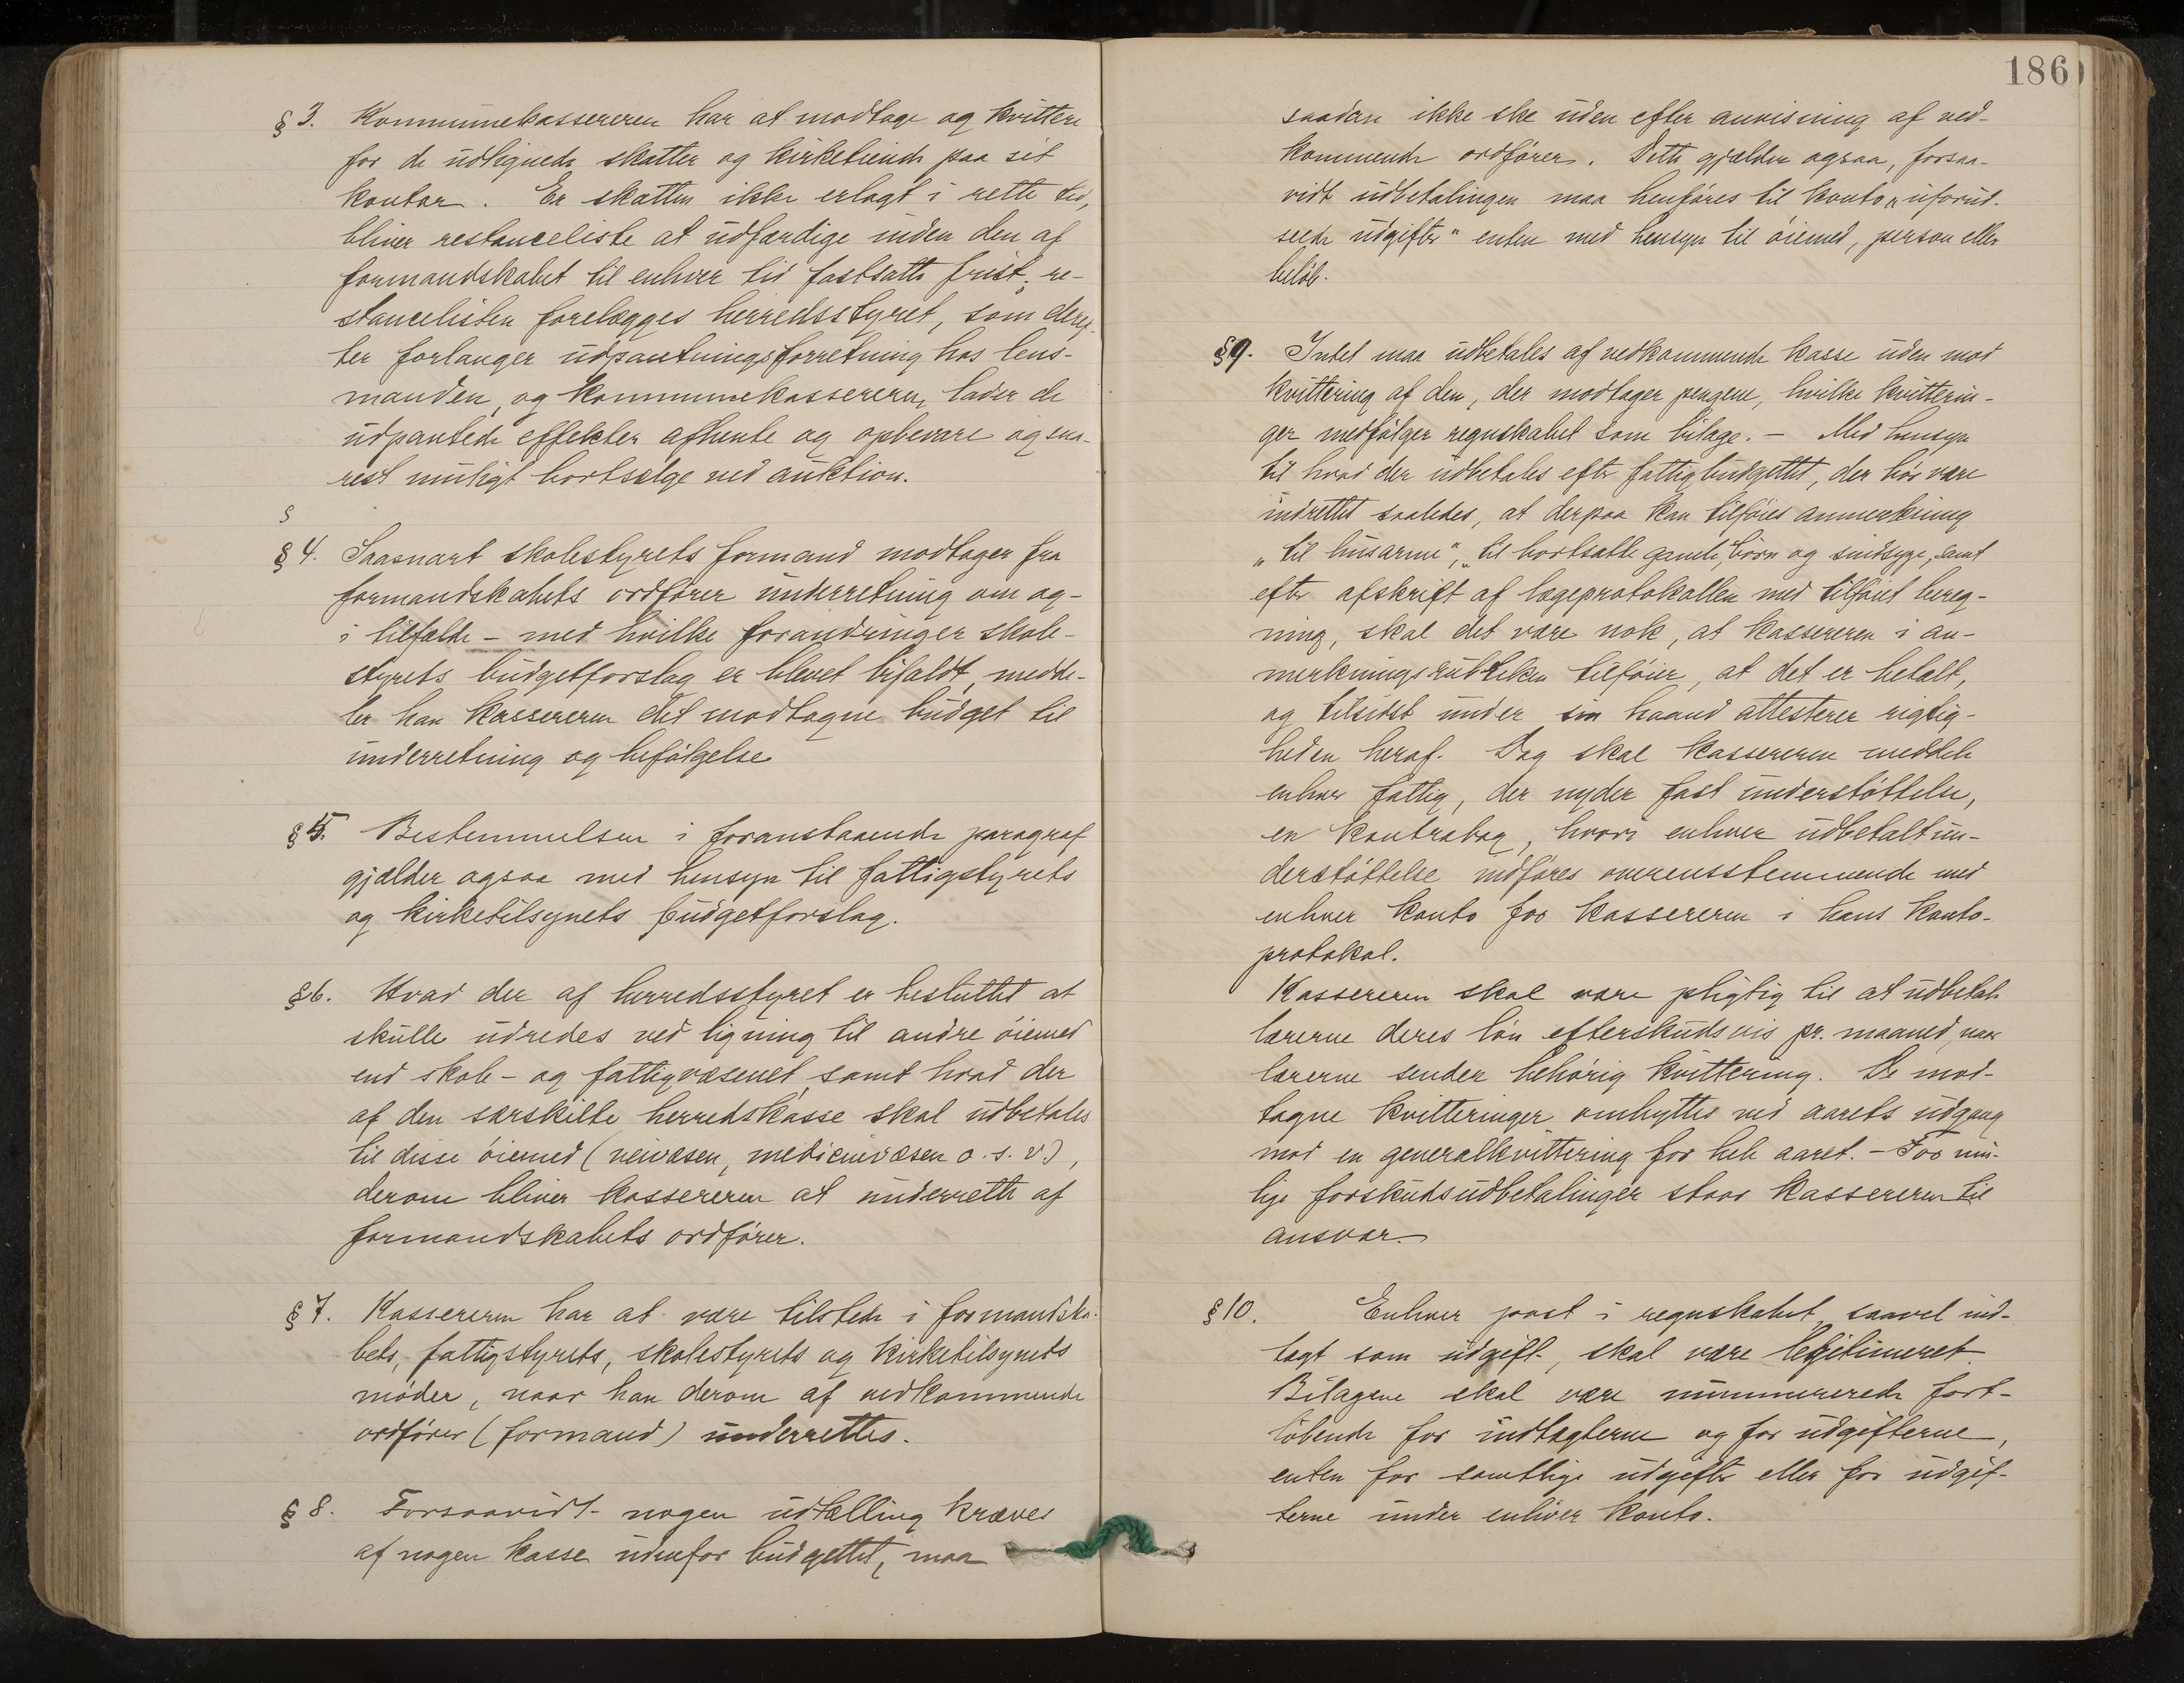 § 3. Kommunekassereren har at modtage og kvittere
for de udlignede skatter og kirketiende paa sit
kontor. Er skatten ikke erlagt i rette tid,
bliver restanceliste at udfærdige inden den af
formandskabet til enhver tid fastsatte frist; re-
stancelisten forelægges herredsstyret, som deref-
ter forlanger udpantningsforretning hos lens-
manden, og kommunekassereren lader de
udpantede effekter afhente og opbevare og sna-
rest muligt bortsælge ved auktion.
§
§ 4. Saasnart skolestyrets formand modtager fra
formandskabets ordfører underretning om og -
i tilfælde - med hvilke forandringer skole-
styrets budgetforslag er blevet bifaldt, medde-
ler han kassereren det modtagne budget til
underretning og befølgelse
§ 5. Bestemmelsen i foranstaaende paragraf
gjælder ogsaa med hensyn til fattigstyrets
og kirketilsynets budgetforslag.
§ 6. Hvad der af herredsstyret er besluttet at
skulle udredes ved ligning til andre øiemed
end skole- og fattigvæsenet samt hvad der
af den særskilte herredskasse skal udbetales
til disse øiemed (veivæsen, medicinvæsen o. s. v.),
derom bliver kassereren at underrette af
formandskabets ordfører.
§ 7. Kassereren har at være tilstede i formandska-
bets, fattigstyrets, skolestyrets og kirketilsynets
møder, naar han derom af vedkommende
ordfører (formand) underrettes.
§ 8. Forsaavidt nogen udtælling kræves
af nogen kasse udenfor budgettet, maa
186
saadan ikke ske uden efter anvisning af ved-
kommende ordfører. Dette gjælder ogsaa, forsaa-
vidt udbetalingen maa henføres til konto „uforud-
seede udgifter“ enten med hensyn til øiemed, person eller
beløb.
§ 9. Intet maa udbetales af vedkommende kasse uden mod
kvittering af den, der modtager pengene, hvilke kvitterin-
ger medfølger regnskabet som bilage. - Med hensyn
til hvad der udbetales efter fattigbudgettet, der bør være
indrettet saaledes, at derpaa kan tilføies anmerkning
„til husarme“, „til bortsatte gamle, børn og sindsyge, samt
efter afskrift af lægeprotokollen med tilføiet bereg-
ning, skal det være nok, at kassereren i an-
merkningsrubriken tilføier, at det er betalt,
og tilsidst under sin haand attesterer rigtig-
heden heraf. Dog skal kassereren meddele
enhver fattig, der nyder fast understøttelse,
en kontrabog, hvori enhver udbetalt un-
derstøttelse indføres overensstemmende med
enhver konto for kassereren i hans konto-
protokol.
Kassereren skal være pligtig til at udbetale
lærerne deres løn efterskudsvis pr. maaned, naar
lærerne sender behørig kvittering. De mod-
tagne kvitteringer ombyttes ved aarets udgang
mod en generalkvittering for hele aaret. - For mu-
lige forskudsudbetalinger staar kassereren til
ansvar.
§ 10. Enhver post i regnskabet, saavel ind-
tægt som udgift, skal være legitimeret.
Bilagene skal være nummererede fort-
løbende for indtægterne og for udgifterne,
enten for samtlige udgifter eller for udgif-
terne under enhver konto.